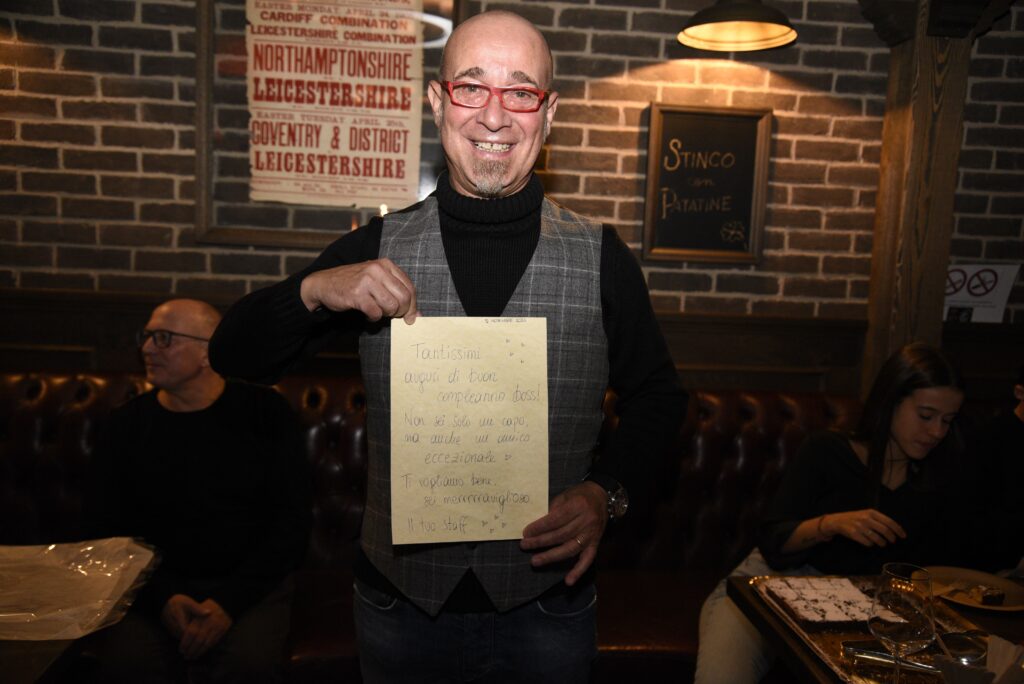 EASTER MONDAY, APRIL 24
CARDIFF COMBINATION
LEICESTERSHIRE COMBINATION
NORTHAMPTONSHIRE
LEICESTERSHIRE
EASTER TUESDAY, APRIL 25th.
COVENTRY & DISTRICT
LEICESTERSHIRE
STINCO
con
PATATINE
Tantissimi
auguri di buon
compleanno boss!
Non sei solo un capo,
ma anche un amico
eccezionale
Ti vogliamo bene.
sei merrrraviglioso.
Il tuo staff